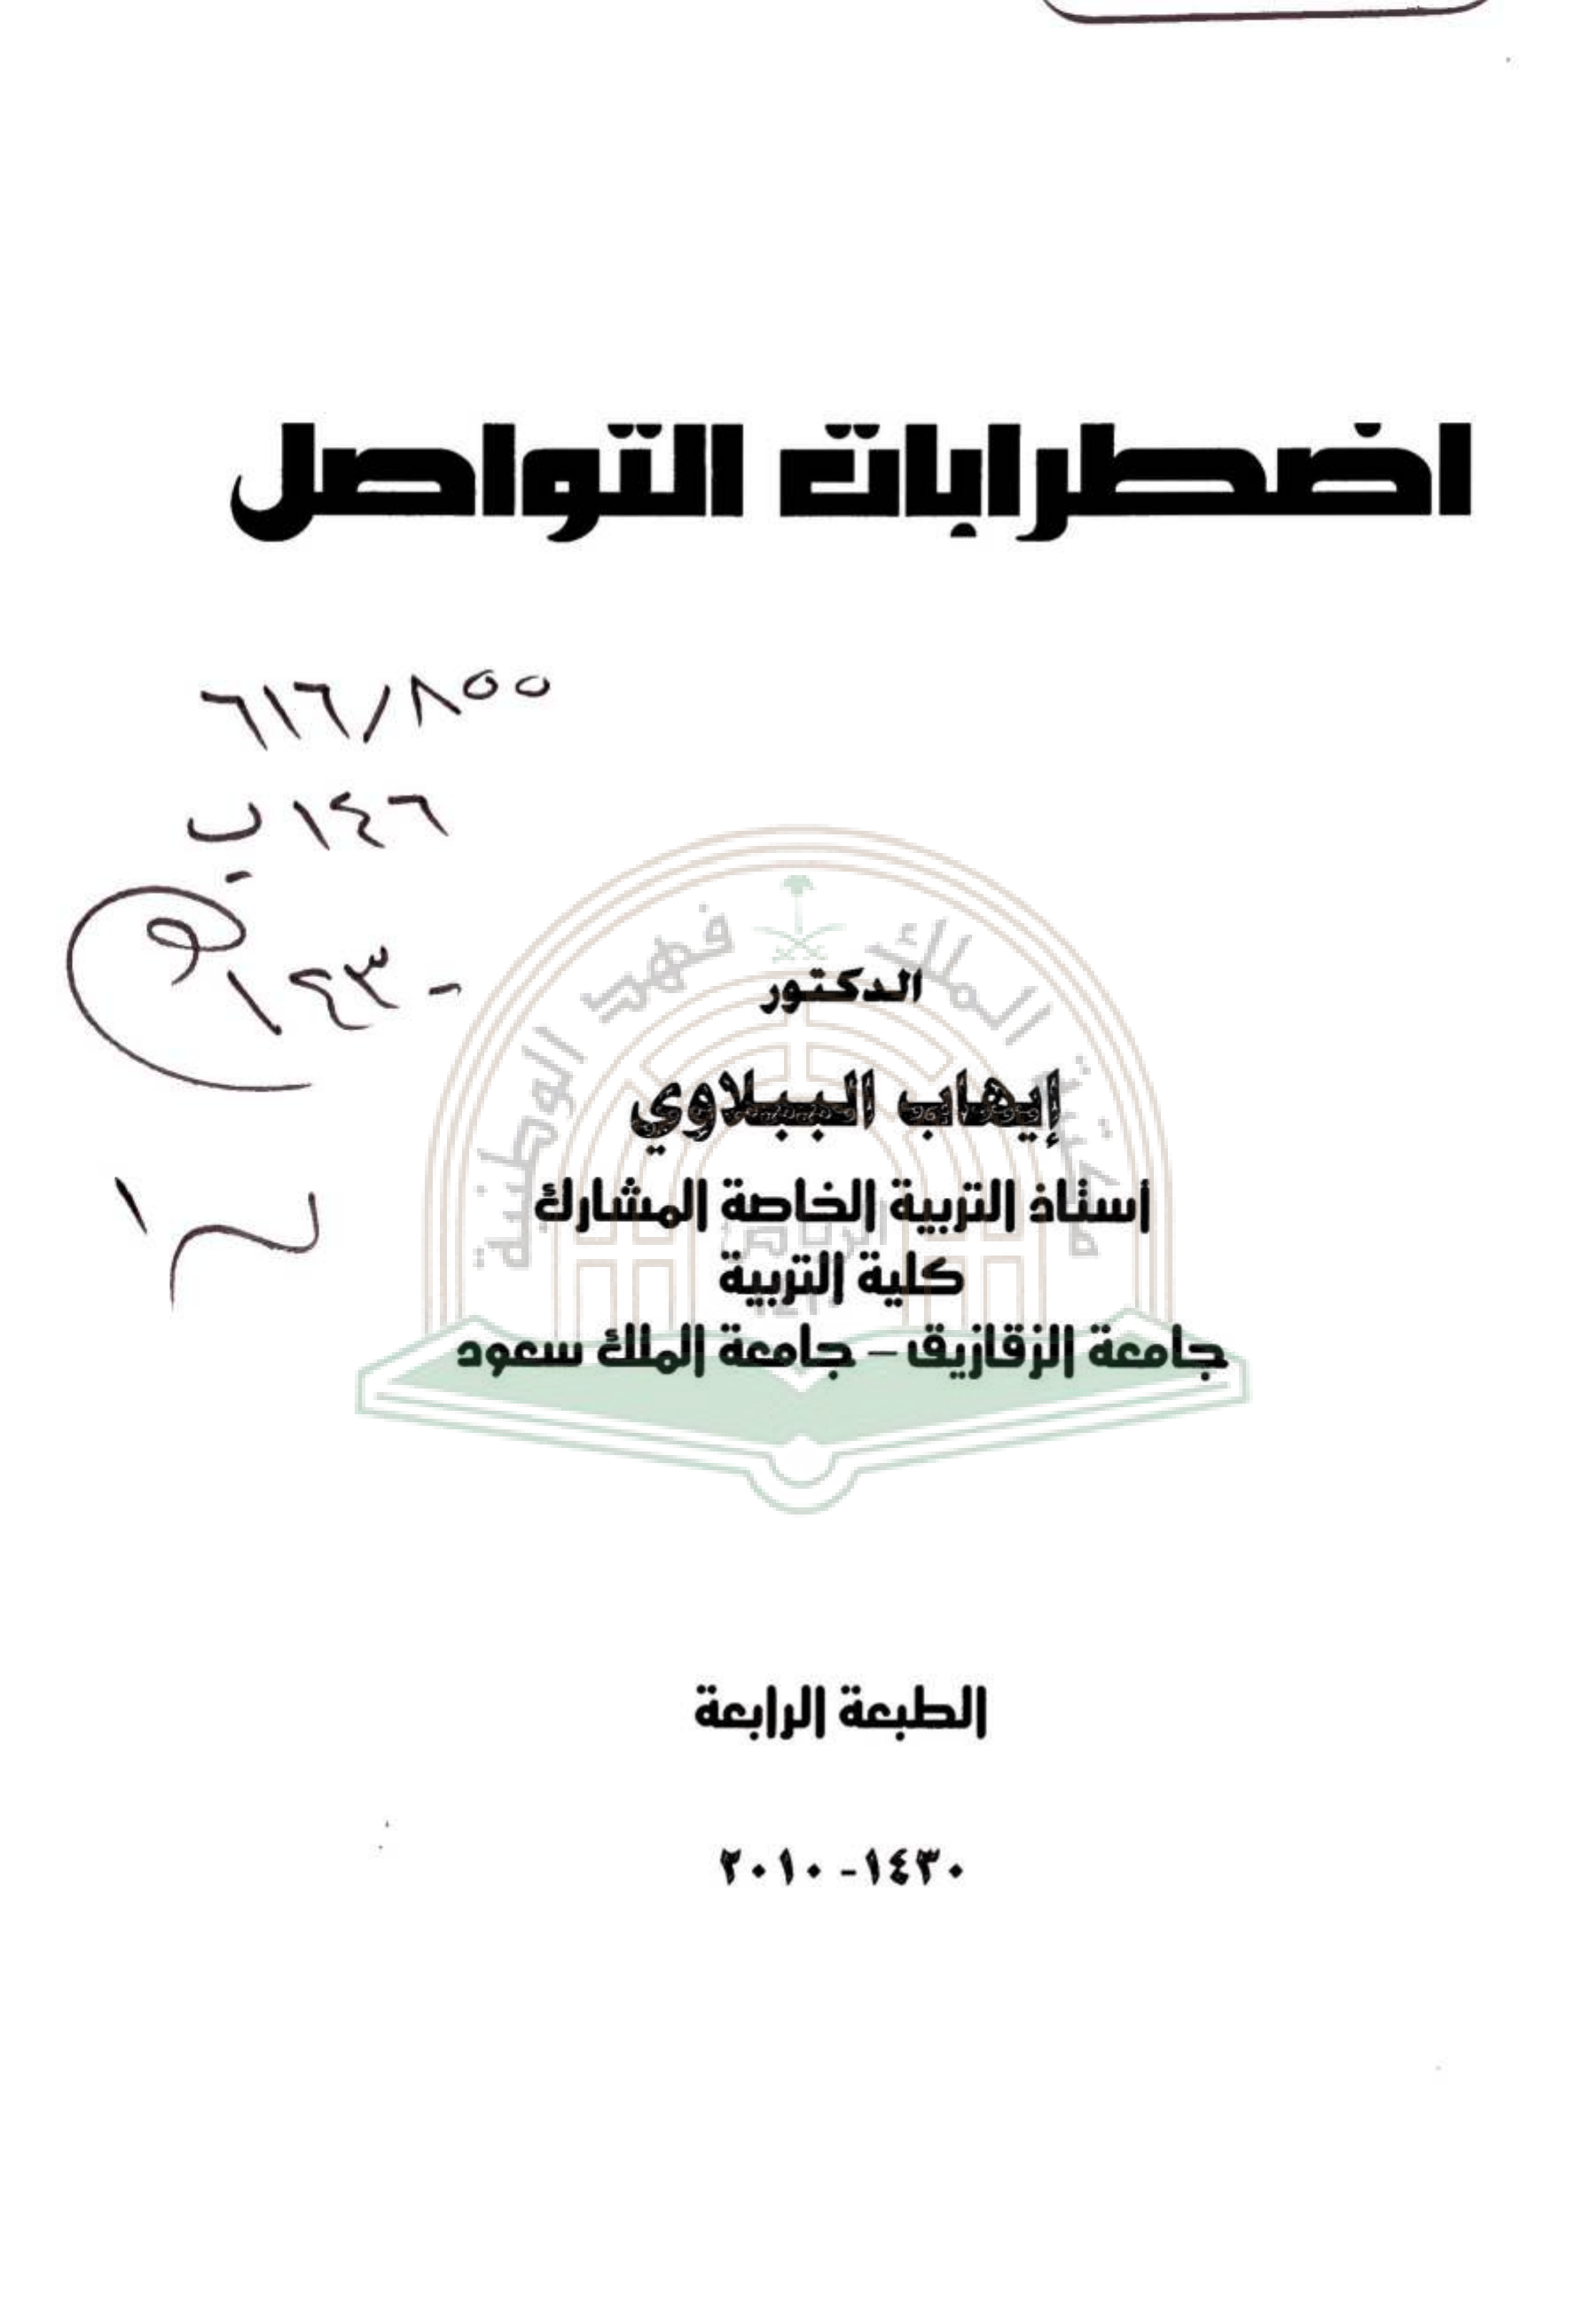 اضطرابات التواصل
٦١٦/٨٥٥
ب ١٤٦
١٤٣٠
مكتبة الملك فهد الوطنية
الدكتور
إيهاب الببلاوي
أستاذ التربية الخاصة المشارك
كلية التربية
جامعة الزقازيق – جامعة الملك سعود
الطبعة الرابعة
١٤٣٠- ٢٠١٠